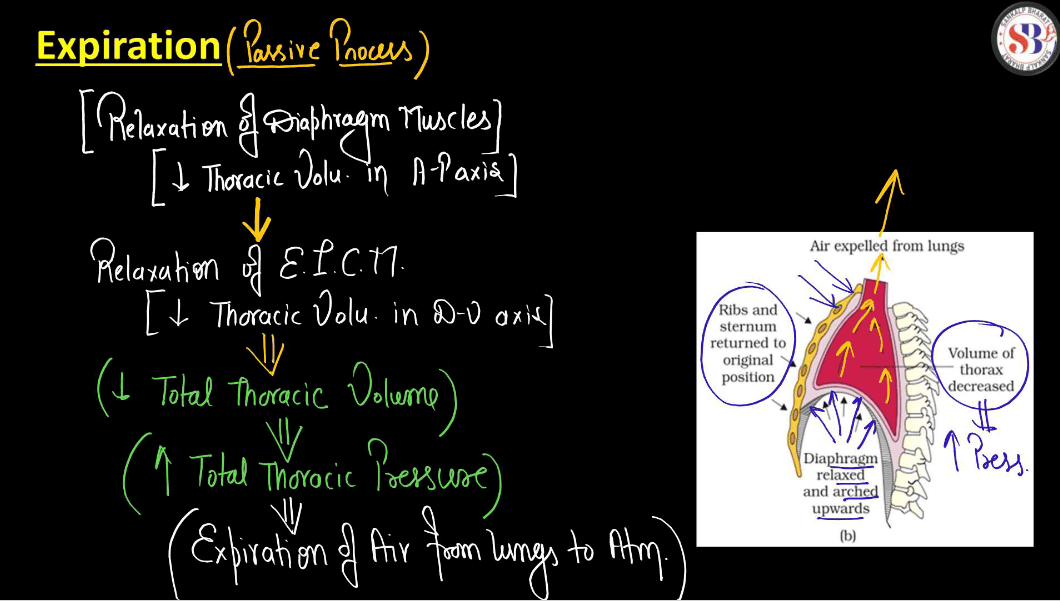 Expiration (Passive Process)
[Relaxation of Diaphragm Muscles]
[↓ Thoracic Volu. in A-P axis]
↓
Relaxation of E.I.C.M.
[↓ Thoracic Volu. in D-V axis]
⇓
(↓ Total Thoracic Volume)
⇓
(↑ Total Thoracic Pressure)
⇓
(Expiration of Air from lungs to Atm.)
SANKALP BHARAT
SB
SANKALP BHARAT
Air expelled from lungs
Ribs and
sternum
returned to
original
position
Volume of
thorax
decreased
⇓
↑ Press.
Diaphragm
relaxed
and arched
upwards
(b)